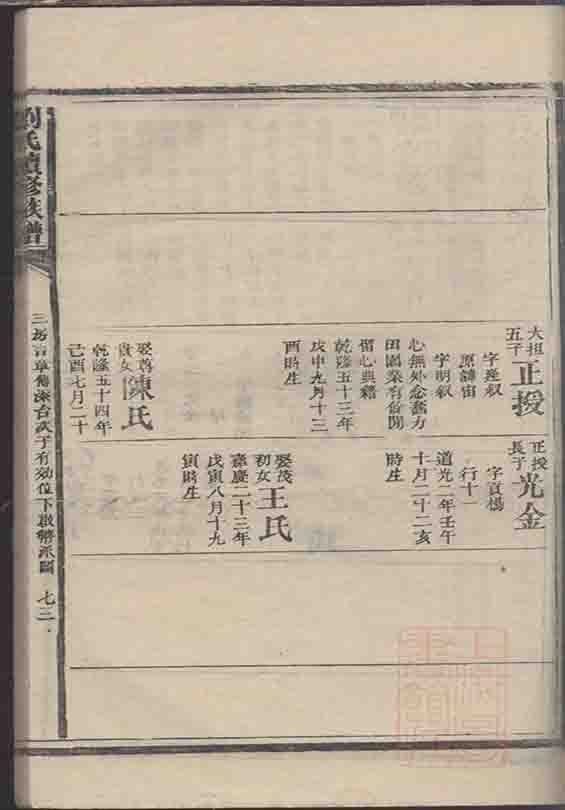 劉氏續修族譜
大拒
五子
正授
字達叙
原諱宙
字明叙
心無外念奮力
田園業有餘閒
留心典籍
乾隆五十三年
戊申九月十三
酉時生
娶尊
貴女
陳氏
乾隆五十四年
己酉七月二十
正授
長子
光金
字貢楊
行十一
道光二年壬午
十月二十二亥
時生
娶茂
初女
王氏
嘉慶二十三年
戊寅八月十九
寅時生
七三